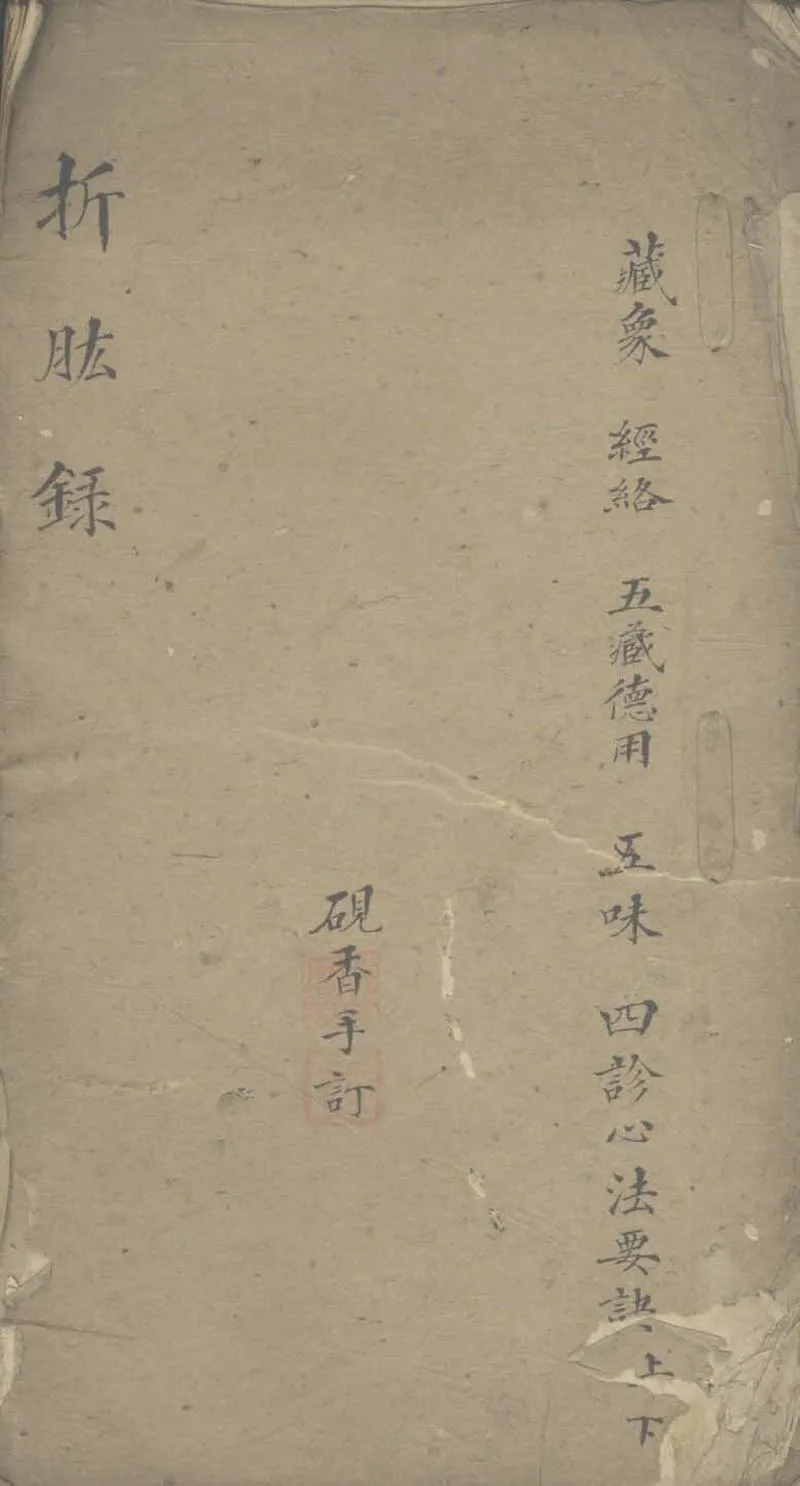 藏象 經絡 五藏德用 五味 四診心法要訣上下
硯香手訂
折肱録